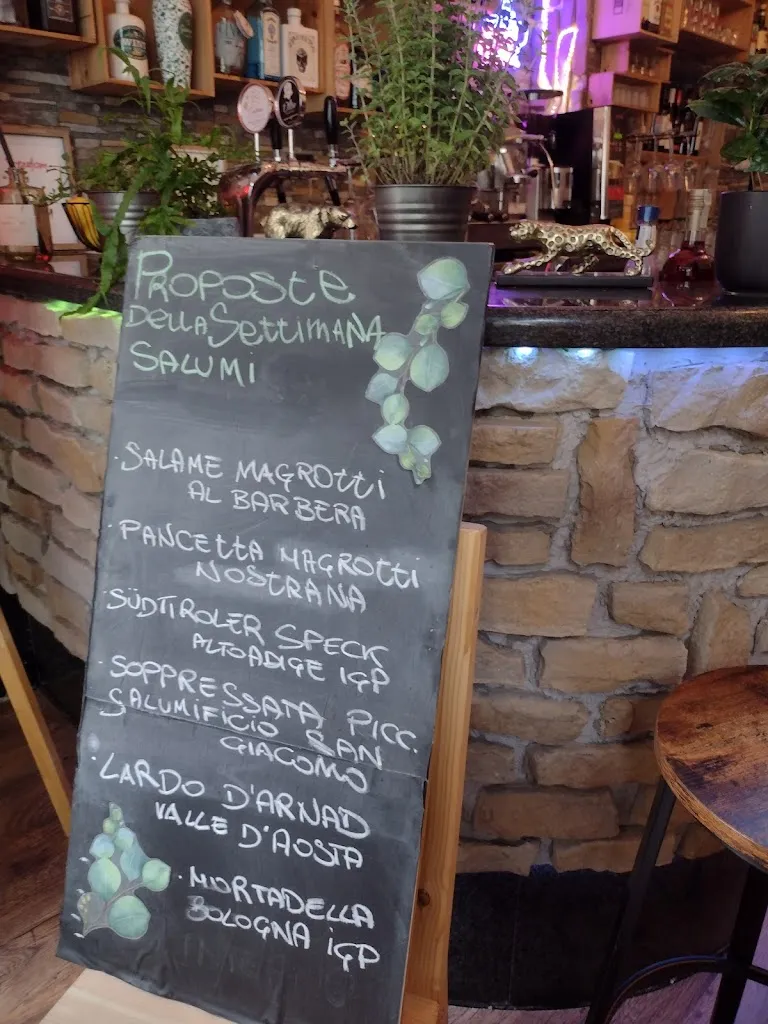 PROPOSTE
DELLA SETTIMANA
SALUMI
·SALAME MAGROTTI
AL BARBERA
·PANCETTA MAGROTTI
NOSTRANA
·SÜDTIROLER SPECK
ALTOADIGE IGP
·SOPPRESSATA PICC.
SALUMIFICIO SAN
GIACOMO
·LARDO D'ARNAD
VALLE D'AOSTA
·MORTADELLA
BOLOGNA IGP